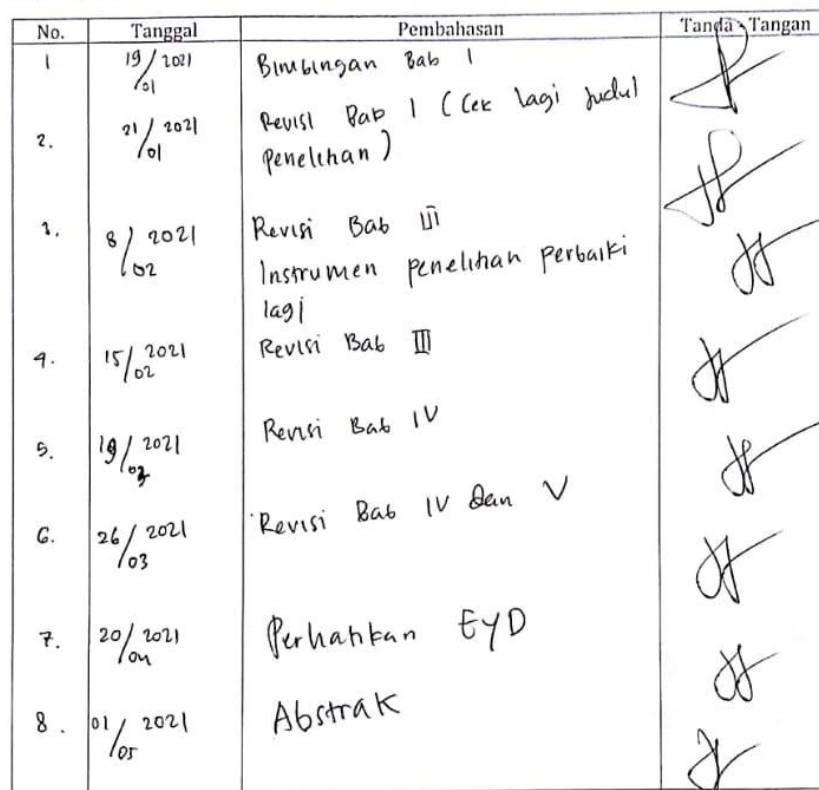 No. Tanggal Pembahasan Tanda Tangan
1 19/01 2021 Bimbingan Bab 1
2. 21/01 2021 Revisi Bab 1 (Cek lagi Judul
penelitian)
3. 8/02 2021 Revisi Bab III
Instrumen penelitian perbaiki
lagi
4. 15/02 2021 Revisi Bab III
5. 19/03 2021 Revisi Bab IV
6. 26/03 2021 Revisi Bab IV dan V
7. 20/04 2021 Perhatikan EYD
8. 01/05 2021 Abstrak